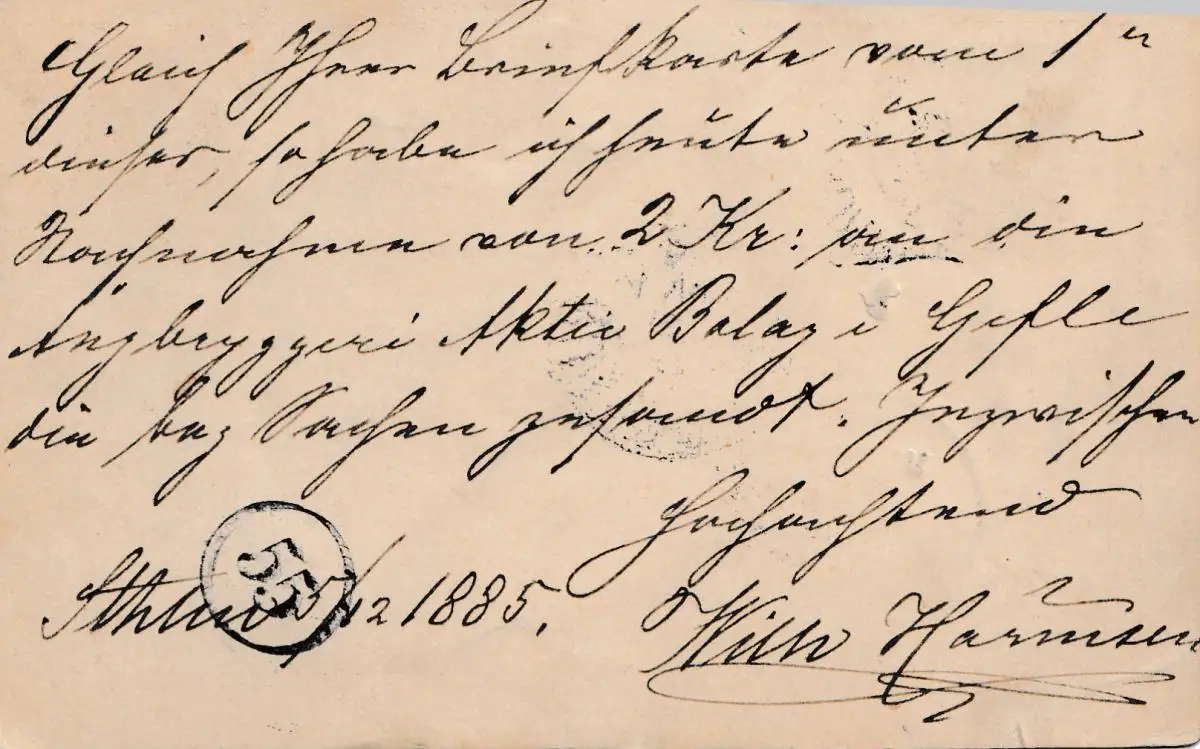 Gleich Ihrer Briefkarte vom 1"
dieses, so habe ich heute unter
Nachnahme von 2 Kr: an die
Ångbryggeri Aktie Bolag i Gefle
die bez Sachen gesandt. Inzwischen
hochachtend
Sthlm 5/12 1885.
Wilh Harmsen
55